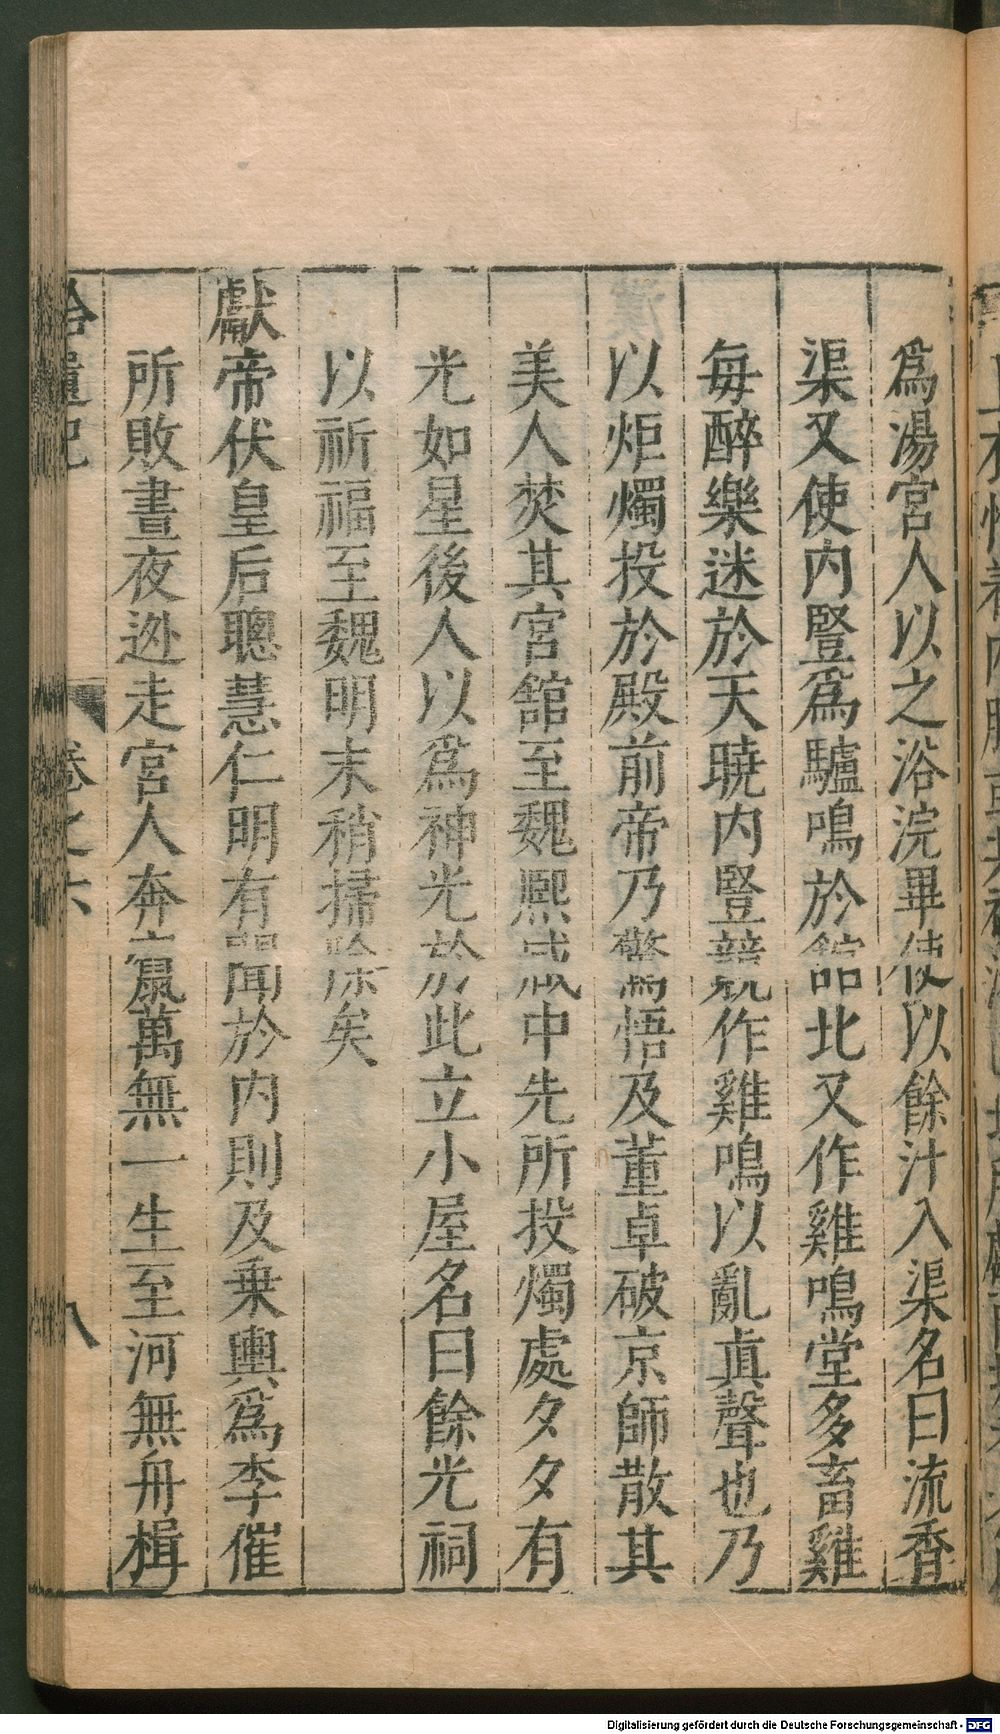 爲湯宮人以之浴浣畢使以餘汁入渠名曰流香
渠又使内豎爲驢鳴於館北又作雞鳴堂多畜雞
每醉樂迷於天曉内豎競作雞鳴以亂眞聲也乃
以炬燭投於殿前帝乃驚悟及董卓破京師散其
美人焚其宮館至魏熙咸中先所投燭處夕夕有
光如星後人以爲神光於此立小屋名曰餘光祠
以祈福至魏明末稍掃除矣
獻帝伏皇后聰慧仁明有聞於内則及乗輿爲李傕
所敗晝夜逃走宮人奔竄萬無一生至河無舟楫
拾遺記
卷之六
八
Digitalisierung gefördert durch die Deutsche Forschungsgemeinschaft - DFG